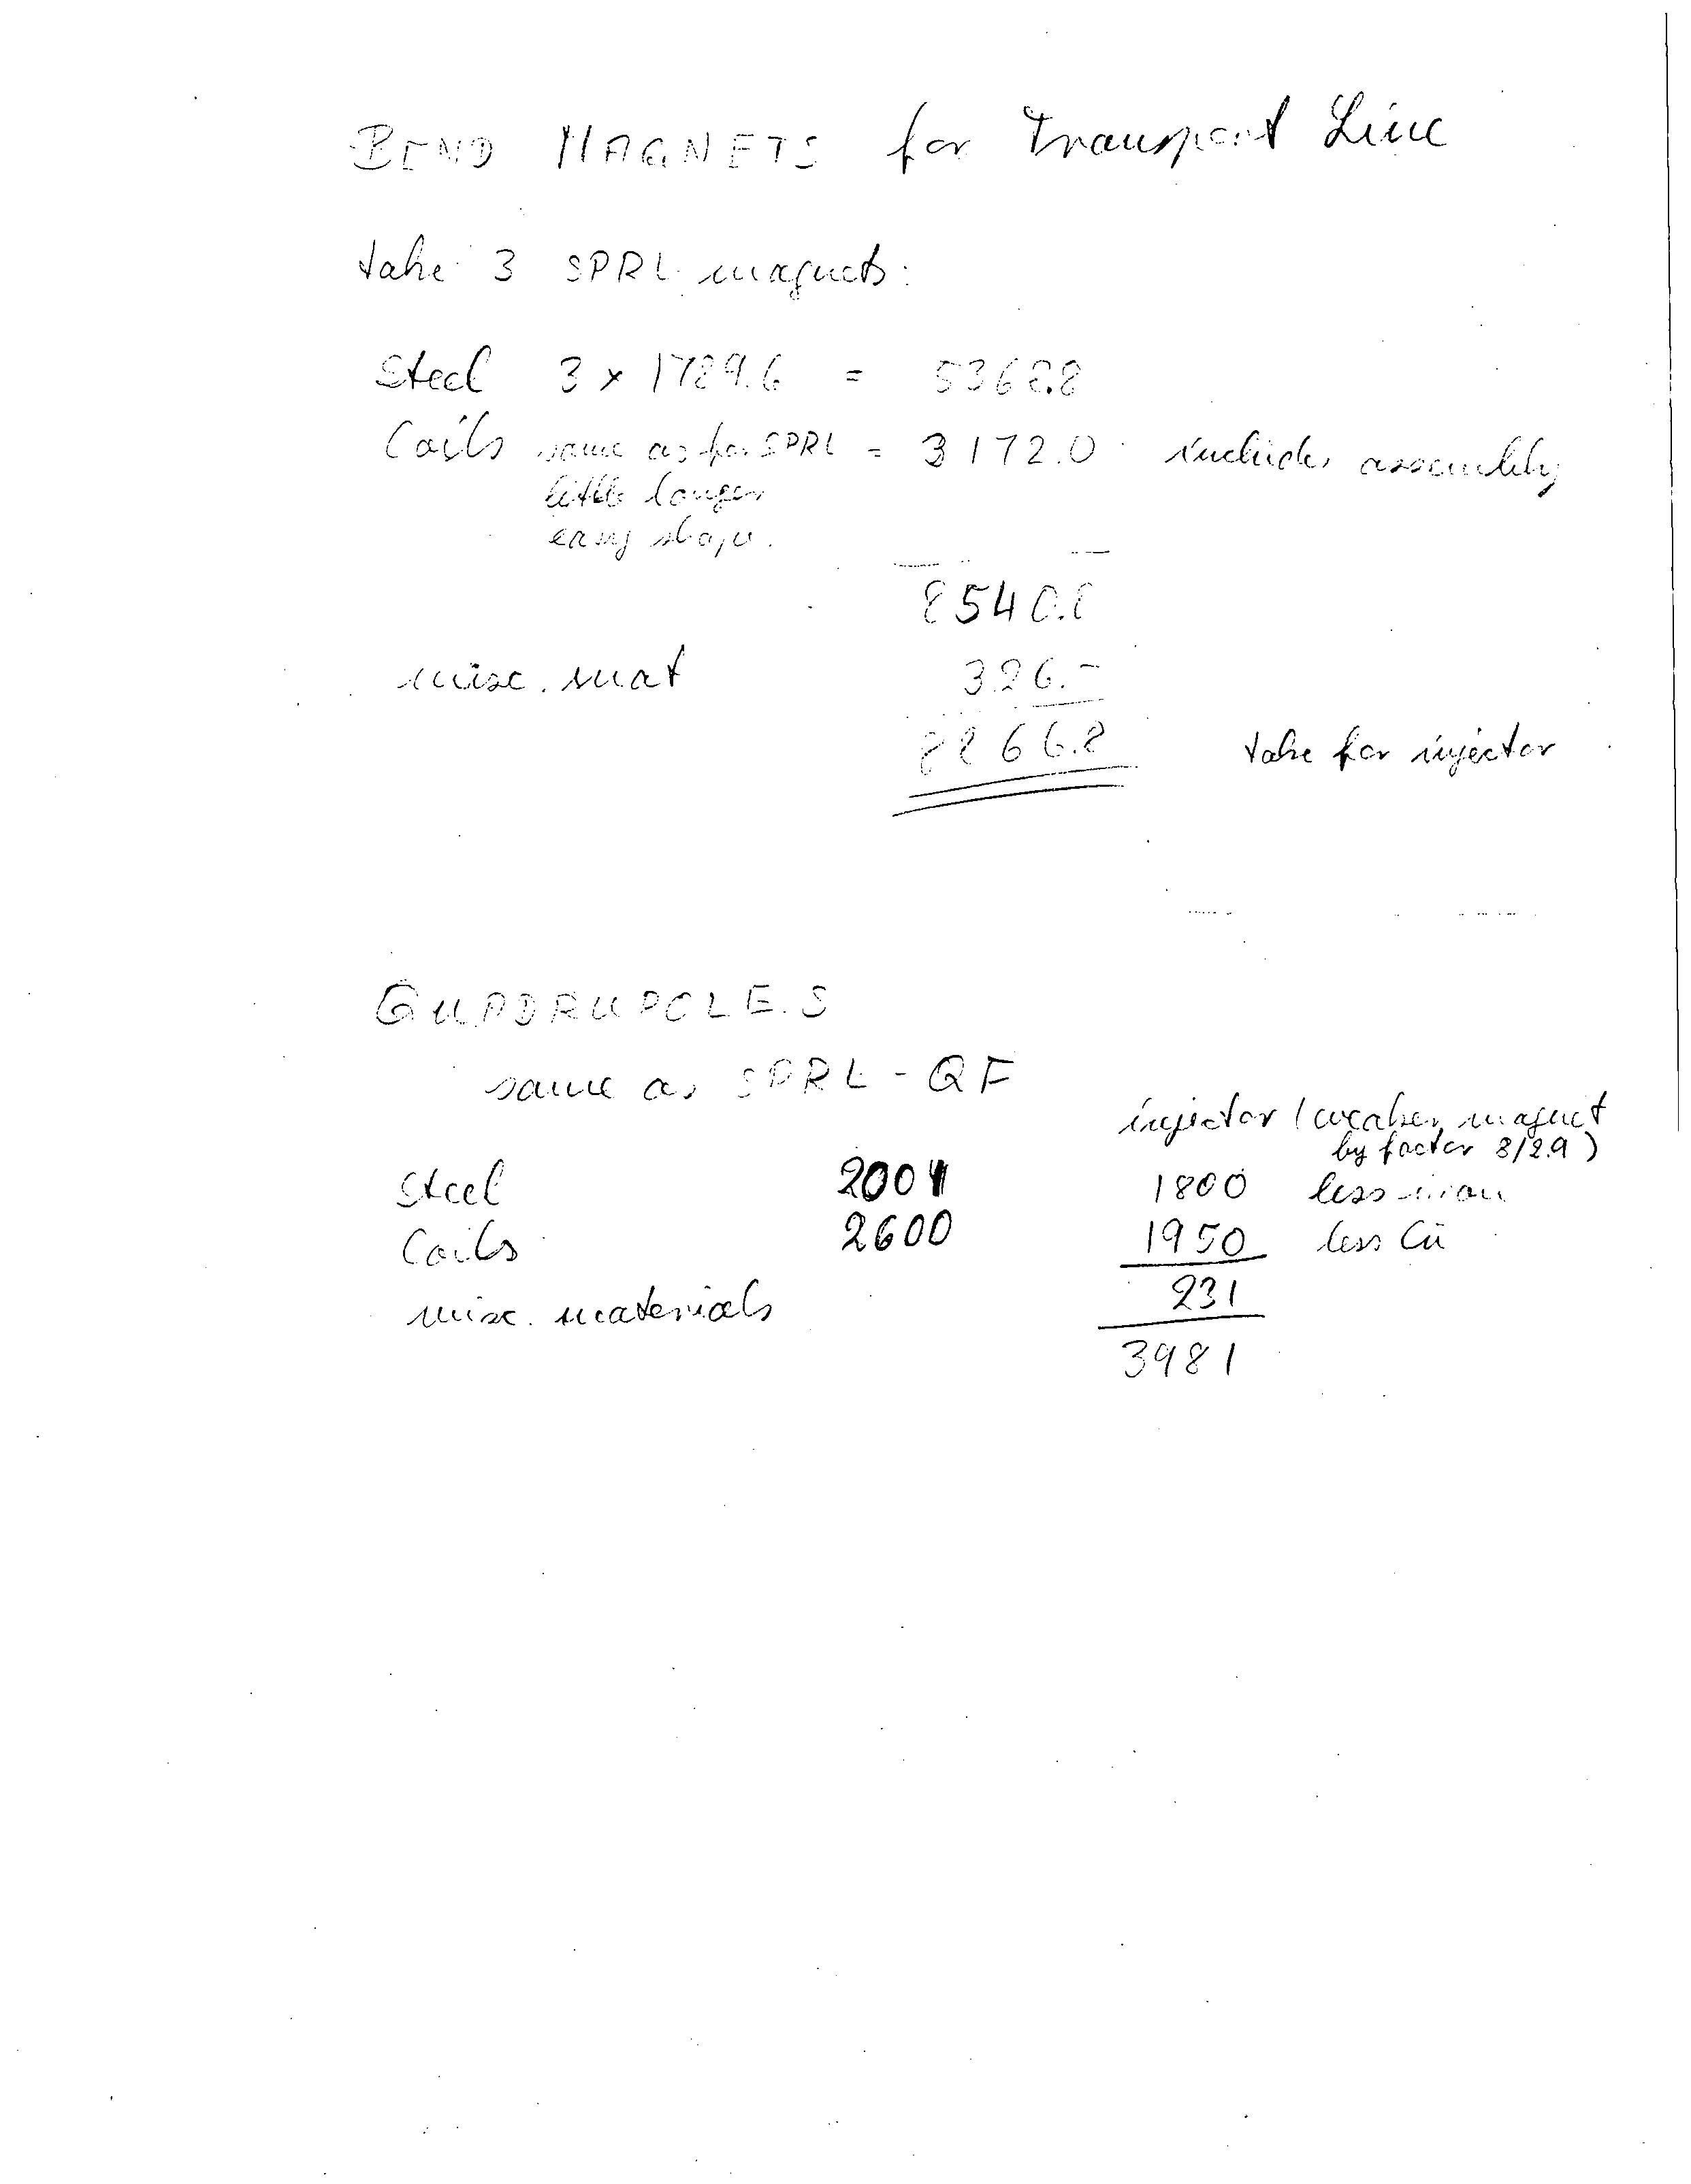 BEND MAGNETS for Transport Line
take 3 SPRL magnets:
Steel 3 x 1789.6 = 5368.8
Coils same as for SPRL = 3172.0 includes assembly
little longer
easy shape.
8540.8
misc. mat 326.-
8866.8 take for injector
QUADRUPOLES
same as SPRL - QF
injector (weaker magnet
by factor 8/2.9)
Steel 2001 1800 less iron
Coils 2600 1950 less Cu
misc. materials 231
3981